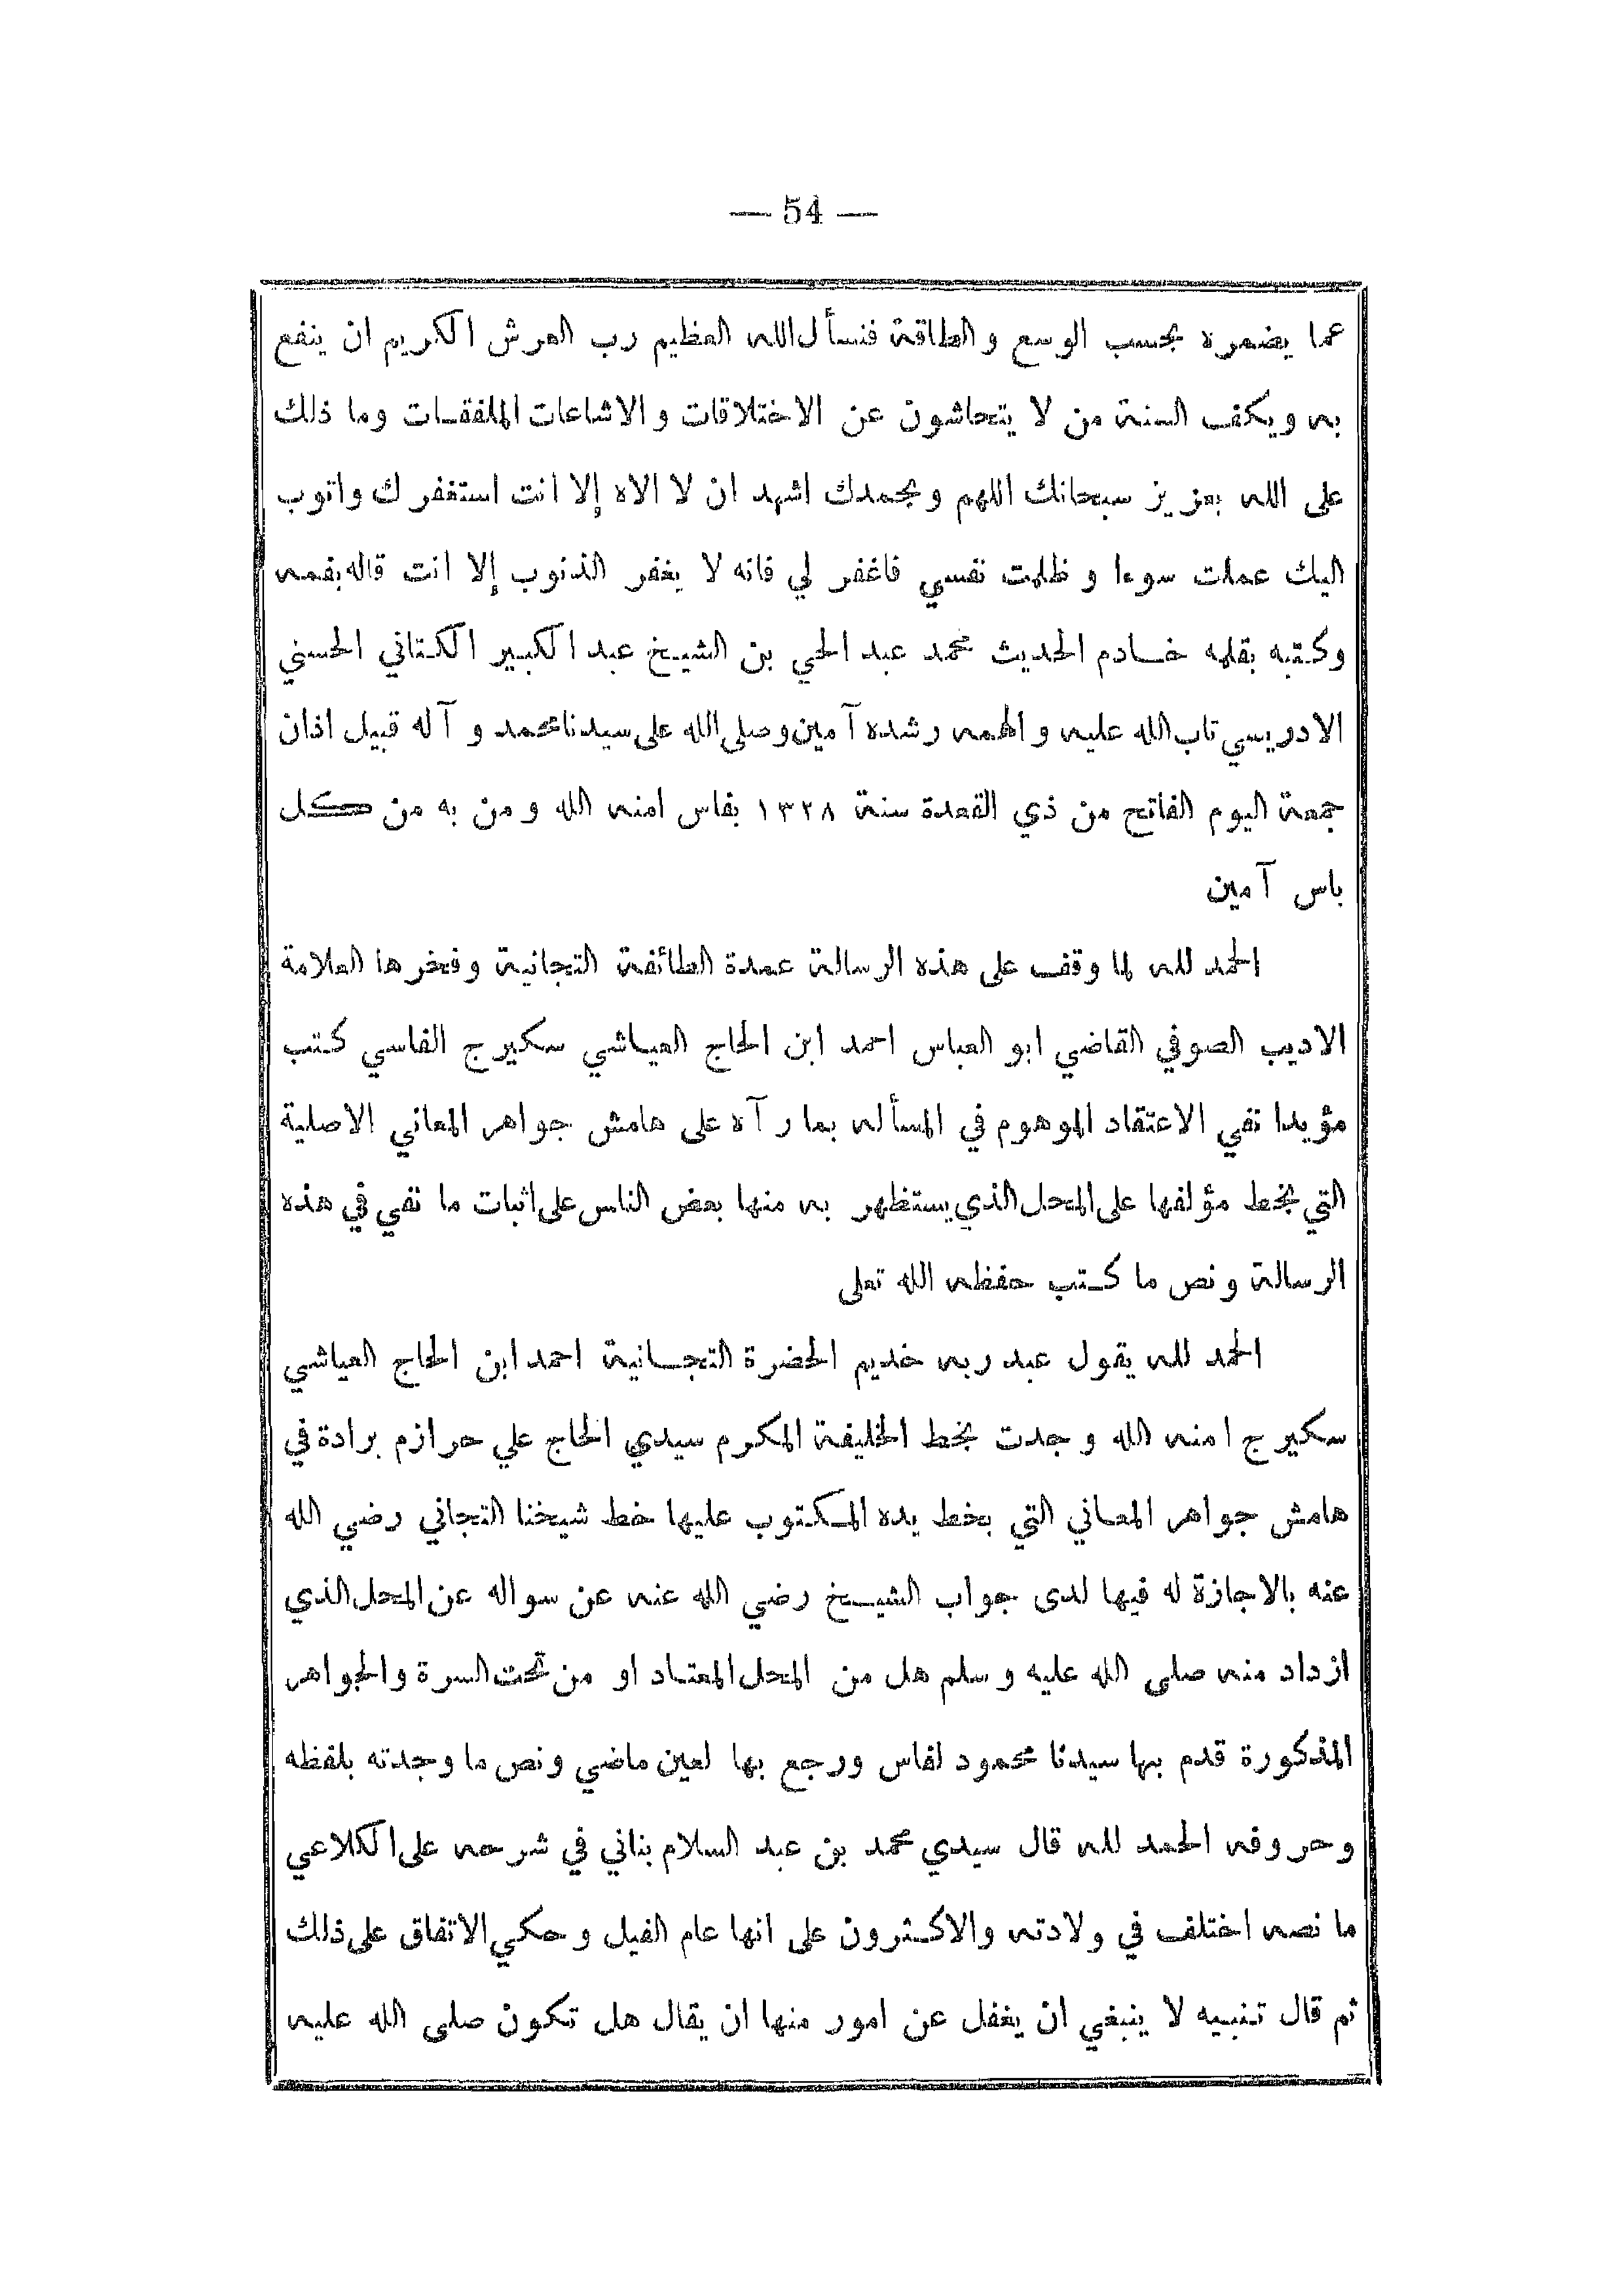 — 54 —
عما يضمره بحسب الوسع والطاقة فنسأل الله العظيم رب العرش الكريم ان ينفع
به ويكفف السنة من لا يتحاشون عن الاختلاقات والاشاعات الملفقات وما ذلك
على الله بعزيز سبحانك اللهم وبحمدك اشهد ان لا الاه إلا انت استغفرك واتوب
اليك عملت سوءا وظلمت نفسي فاغفر لي فانه لا يغفر الذنوب إلا انت قاله بفمه
وكتبه بقلمه خادم الحديث محمد عبد الحي بن الشيخ عبد الكبير الكتاني الحسني
الادريسي تاب الله عليه والهمه رشده آمين وصلى الله على سيدنا محمد وآله قبيل اذان
جمعة اليوم الفاتح من ذي القعدة سنة ١٣٢٨ بفاس امنه الله ومن به من كل
باس آمين
الحمد لله لما وقف على هذه الرسالة عمدة الطائفة التجانية وفخرها العلامة
الاديب الصوفي القاضي ابو العباس احمد ابن الحاج العياشي سكيرج الفاسي كتب
مؤيدا نفي الاعتقاد الموهوم في المسألة بما رآه على هامش جواهر المعاني الاصلية
التي بخط مؤلفها على المحل الذي يستظهر به منها بعض الناس على اثبات ما نفي في هذه
الرسالة ونص ما كتب حفظه الله تعلى
الحمد لله يقول عبد ربه خديم الحضرة التجانية احمد ابن الحاج العياشي
سكيرج امنه الله وجدت بخط الخليفة المكرم سيدي الحاج علي حرازم برادة في
هامش جواهر المعاني التي بخط يده المكتوب عليها خط شيخنا التجاني رضي الله
عنه بالاجازة له فيها لدى جواب الشيخ رضي الله عنه عن سواله عن المحل الذي
ازداد منه صلى الله عليه وسلم هل من المحل المعتاد او من تحت السرة والجواهر
المذكورة قدم بها سيدنا محمود لفاس ورجع بها لعين ماضي ونص ما وجدته بلفظه
وحروفه الحمد لله قال سيدي محمد بن عبد السلام بناني في شرحه على الكلاعي
ما نصه اختلف في ولادته والاكثرون على انها عام الفيل وحكي الاتفاق على ذلك
ثم قال تنبيه لا ينبغي ان يغفل عن امور منها ان يقال هل تكون صلى الله عليه